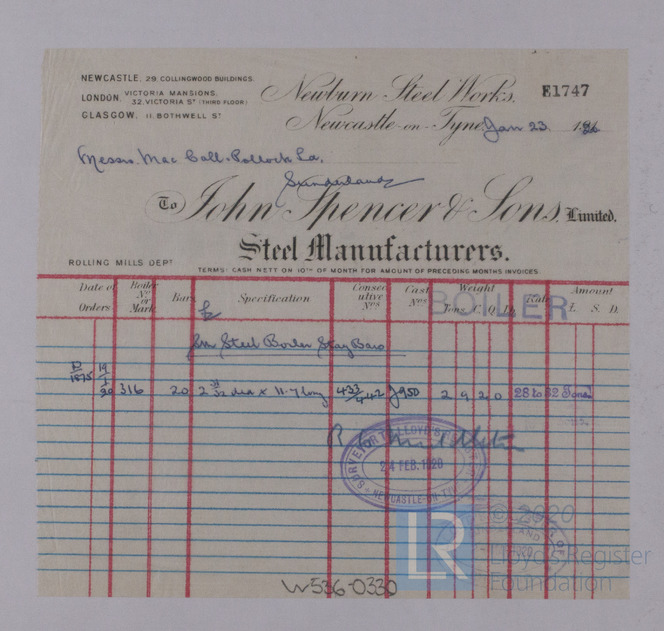 NEWCASTLE, 29 COLLINGWOOD BUILDINGS.
LONDON, VICTORIA MANSIONS,
32, VICTORIA ST (THIRD FLOOR)
GLASGOW, 11, BOTHWELL ST
Newburn Steel Works,
E1747
Newcastle-on-Tyne Jan 23 1920
Messrs. Mac Coll & Pollock Ld.
Sunderland
To John Spencer & Sons, Limited.
Steel Manufacturers.
ROLLING MILLS DEPT
TERMS: CASH NETT ON 10TH OF MONTH FOR AMOUNT OF PRECEDING MONTHS INVOICES.
Date of Orders Boiler No or Mark Bars Specification Consecutive Nos Cast Nos Weight Tons C. Q. lb. Rate Amount £ S. D.
BOILER
Steel Boiler Stay Bars
D 1875 19/1/20 316 20 2 31/32 dia x 11.7 long 433/442 J950 2 9 2 0 28 to 32 Tons
SURVEYOR TO LLOYD'S
24 FEB. 1920
NEWCASTLE-ON-TYNE
© 2020
LR Lloyd's Register
Foundation
W536-0330